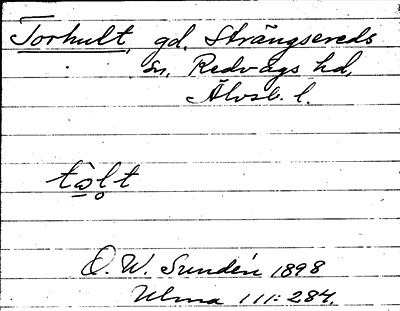 Torhult, gd. Strängsereds
sn, Redvägs hd,
Älvsb. l.
tò̱l̥t
O. W. Sundén 1898
Ulma 111:284.